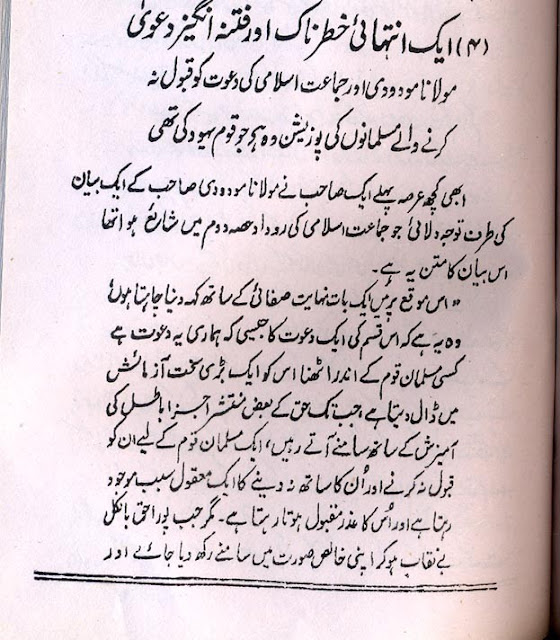 (۴) ایک انتہائی خطرناک اور فتنہ انگیز دعویٰ
مولانا مودودی اور جماعت اسلامی کی دعوت کو قبول نہ
کرنے والے مسلمانوں کی پوزیشن وہ ہے جو قوم یہود کی تھی
ابھی کچھ عرصہ پہلے ایک صاحب نے مولانا مودودی صاحب کے ایک بیان
کی طرف توجہ دلائی جو جماعت اسلامی کی روداد حصہ دوم میں شائع ہوا تھا
اس بیان کا متن یہ ہے۔
"اس موقع پر میں ایک بات نہایت صفائی کے ساتھ کہہ دینا چاہتا ہوں
وہ یہ ہے کہ اس قسم کی ایک دعوت کا جیسی کہ ہماری یہ دعوت ہے
کسی مسلمان قوم کے اندر اٹھنا اس کو ایک بڑی سخت آزمائش
میں ڈال دیتا ہے، جب تک حق کے بعض منتشر اجزا باطل کی
آمیزش کے ساتھ سامنے آتے رہیں، ایک مسلمان قوم کے لیے ان کو
قبول نہ کرنے اور اُن کا ساتھ نہ دینے کا ایک معقول سبب موجود
رہتا ہے اور اُس کا عذر مقبول ہوتا رہتا ہے۔ مگر جب پورا حق بالکل
بے نقاب ہو کر اپنی خالص صورت میں سامنے رکھ دیا جائے اور